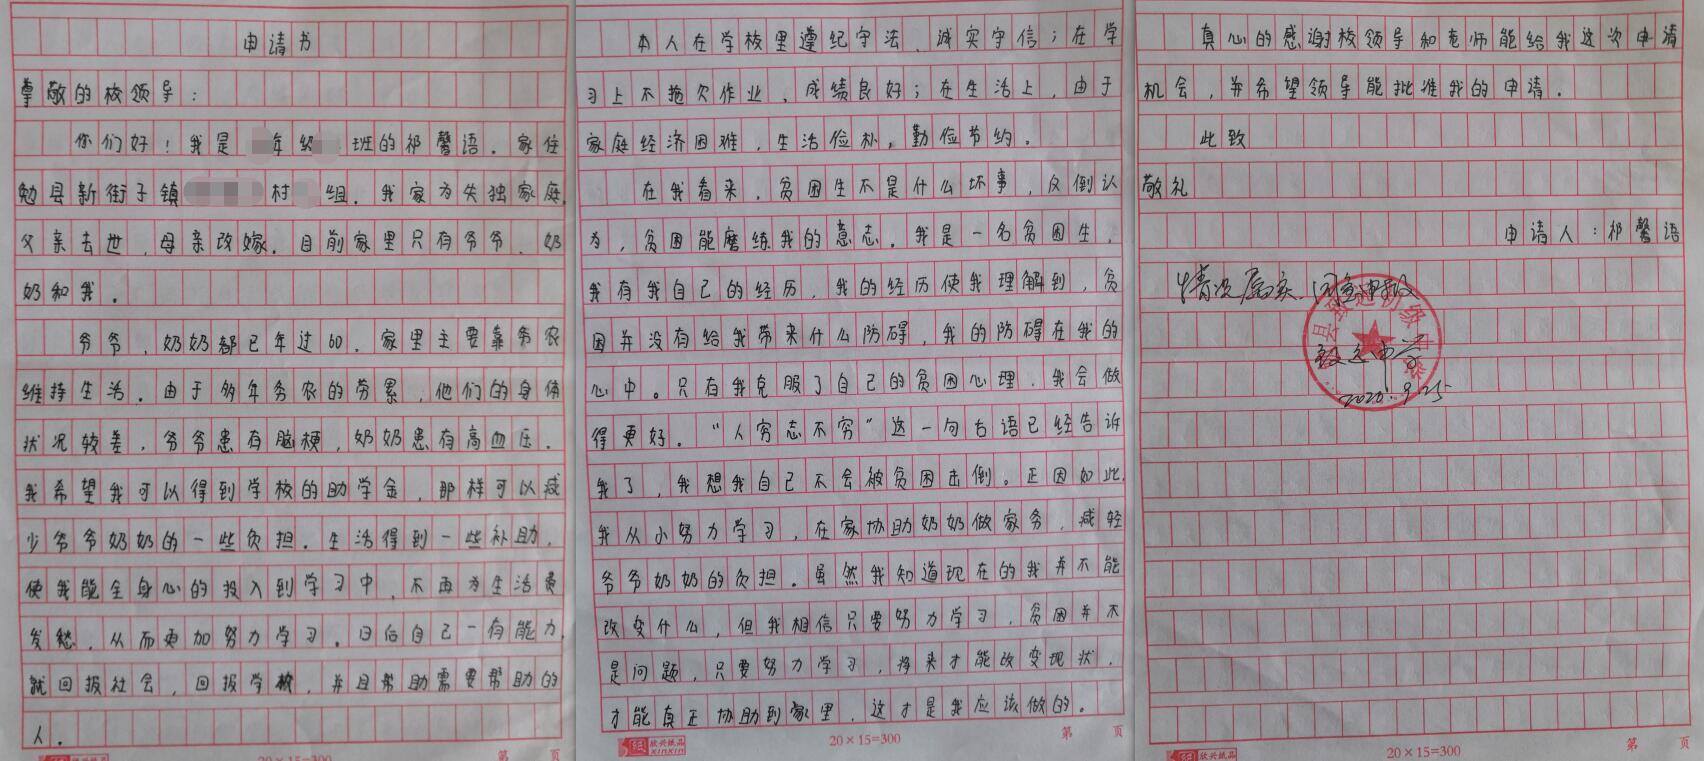 申请书
尊敬的校领导：
你们好！我是 年级 班的祁馨语。家住
勉县新街子镇 村 组。我家为失独家庭，
父亲去世，母亲改嫁。目前家里只有爷爷、奶
奶和我。
爷爷，奶奶都已年过60，家里主要靠务农
维持生活。由于多年务农的劳累，他们的身体
状况较差，爷爷患有脑梗，奶奶患有高血压。
我希望我可以得到学校的助学金，那样可以减
少爷爷奶奶的一些负担。生活得到一些补助，
使我能全身心的投入到学习中，不再为生活费
发愁，从而更加努力学习。日后自己一有能力，
就回报社会，回报学校，并且帮助需要帮助的
人。
第 页
20×15=300
本人在学校里遵纪守法、诚实守信；在学
习上不拖欠作业，成绩良好；在生活上，由于
家庭经济困难，生活俭朴，勤俭节约。
在我看来，贫困生不是什么坏事，反倒认
为，贫困能磨练我的意志。我是一名贫困生，
我有我自己的经历，我的经历使我理解到，贫
困并没有给我带来什么防碍，我的防碍在我的
心中。只有我克服了自己的贫困心理，我会做
得更好。“人穷志不穷”这一句古语已经告诉
我了，我想我自己不会被贫困击倒。正因如此，
我从小努力学习，在家协助奶奶做家务，减轻
爷爷奶奶的负担。虽然我知道现在的我并不能
改变什么，但我相信只要努力学习，贫困并不
是问题，只要努力学习，将来才能改变现状，
才能真正协助到家里，这才是我应该做的。
欣兴纸品
xinxin
20×15=300
第 页
真心的感谢校领导和老师能给我这次申请
机会，并希望领导能批准我的申请。
此致
敬礼
申请人：祁馨语
情况属实，同意申报
致远中学
2020.9.25
欣兴纸品
20×15=300
第 页